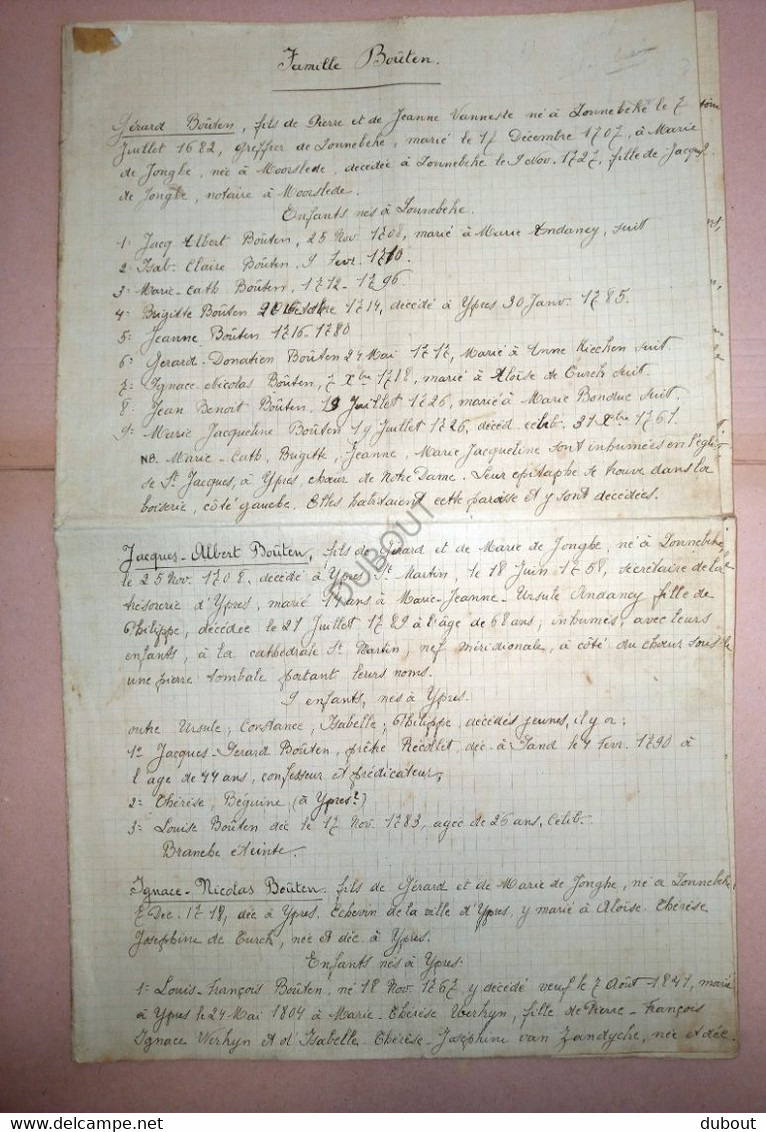 Famille Boûten.
Gérard Boûten, fils de Pierre et de Jeanne Vanneste né à Zonnebeke le 7
Juillet 1682, greffier de Zonnebeke, marié le 17 Décembre 1707, à Marie
de Jonghe, née à Moorslede, décédée à Zonnebeke le 9 Nov. 1727, fille de Jacques
de Jonghe, notaire à Moorslede.
Enfants nés à Zonnebeke.
1: Jacq Albert Boûten, 25 Nov. 1708, marié à Marie Andaney, suit
2: Isab. Claire Boûten, 9 Fevr. 1710.
3: Marie-Cath Boûten, 1712-1796
4: Brigitte Boûten 1714, décédé à Ypres 30 Janv. 1785.
5: Jeanne Boûten 1716-1780
6: Gerard-Donatien Boûten 24 Mai 1717, Marié à Anne Kiecken suit.
7: Ignace-Nicolas Boûten, 7 Xbre 1718, marié à Aloïse de Turck suit.
8: Jean Benoit Boûten, 19 Juillet 1726, marié à Marie Bonduc suit.
9: Marie Jacqueline Boûten 19 Juillet 1726, décéd. célib. 31 Xbre 1761.
NB. Marie-Cath, Brigitte, Jeanne, Marie Jacqueline sont inhumées en l'église
de St. Jacques, à Ypres chœur de Notre Dame. Leur epitaphe se trouve dans la
boiserie, côté gauche. Elles habitaient cette paroisse et y sont décédées.
Jacques-Albert Boûten, fils de Gérard et de Marie de Jonghe, né à Zonnebeke,
le 25 Nov. 1708, décédé à Ypres St. Martin, le 18 Juin 1758, secrétaire de la
trésorerie d'Ypres, marié 14 ans à Marie-Jeanne-Ursule Andaney fille de
Philippe, décédée le 21 Juillet 1789 à l'âge de 68 ans, inhumés, avec leurs
enfants, à la cathédrale St. Martin, nef méridionale, à côté du chœur sous
une pierre tombale portant leurs noms.
9 enfants, nés à Ypres.
outre Ursule, Constance, Isabelle, Philippe, décédés jeunes, il y a:
1: Jacques-Gerard Boûten, prêtre Récollet, déc. à Gand le 4 Fevr. 1790 à
l'age de 44 ans, confesseur et prédicateur,
2: Thérèse, Béguine, (à Ypres?)
3: Louise Boûten déc le 17 Nov. 1783, agée de 26 ans, Célib.
Branche éteinte.
Ignace-Nicolas Boûten. fils de Gérard et de Marie de Jonghe, né à Zonnebeke,
7 Dec. 1718, déc à Ypres. Echevin de la ville d'Ypres, y marié à Aloïse. Thérèse
Josephine de Turck, née et déc. à Ypres.
Enfants nés à Ypres.
1: Louis-François Boûten, né 18 Nov. 1767 y décédé veuf le 7 Août 1841, marié
à Ypres le 24 Mai 1804 à Marie-Thérèse Werhyn, fille de Pierre-François
Ignace Werhyn et d'Isabelle-Thérèse-Josephine van Zandycke, née et déc.
DUBOUT
dubout
delcampe.net